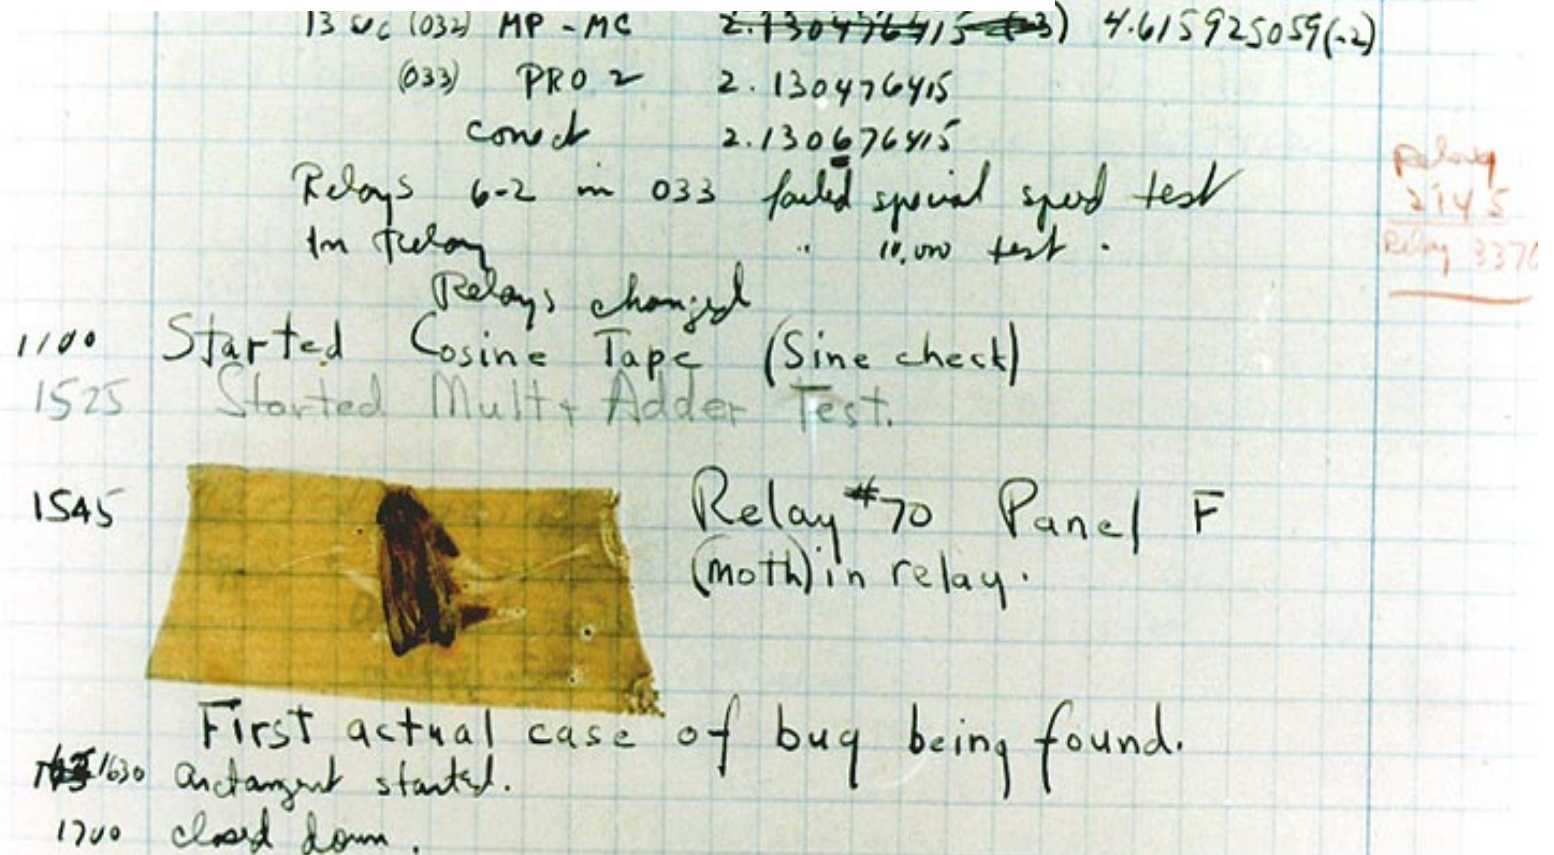 13 uc (032) MP - MC 2.130476415 (-3) 4.615925059(-2)
(033) PRO 2 2.130476415
conect 2.130676415
Relays 6-2 in 033 failed special speed test
In Relay " 10,000 test .
Relay
2145
Relay 3370
Relays changed
1100 Started Cosine Tape (Sine check)
1525 Started Mult + Adder Test.
1545 Relay #70 Panel F
(moth) in relay.
First actual case of bug being found.
1630 arctangent started.
1700 closed down.